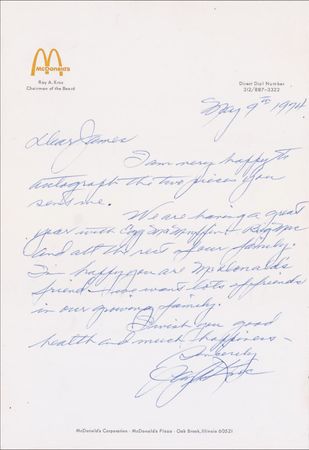 McDonald's
Ray A. Kroc
Chairman of the Board
Direct Dial Number
312/887-3322
May 9th 1974
Dear James
I am very happy to
autograph the two pieces you
sent me.
We are having a great
year with Egg McMuffin + Big Mac
and all the rest of our family.
I'm happy you are McDonald's
friend - we want lots of friends
in our growing family.
I wish you good
health and much happiness -
Sincerely
Ray A Kroc
McDonald's Corporation · McDonald's Plaza · Oak Brook, Illinois 60521